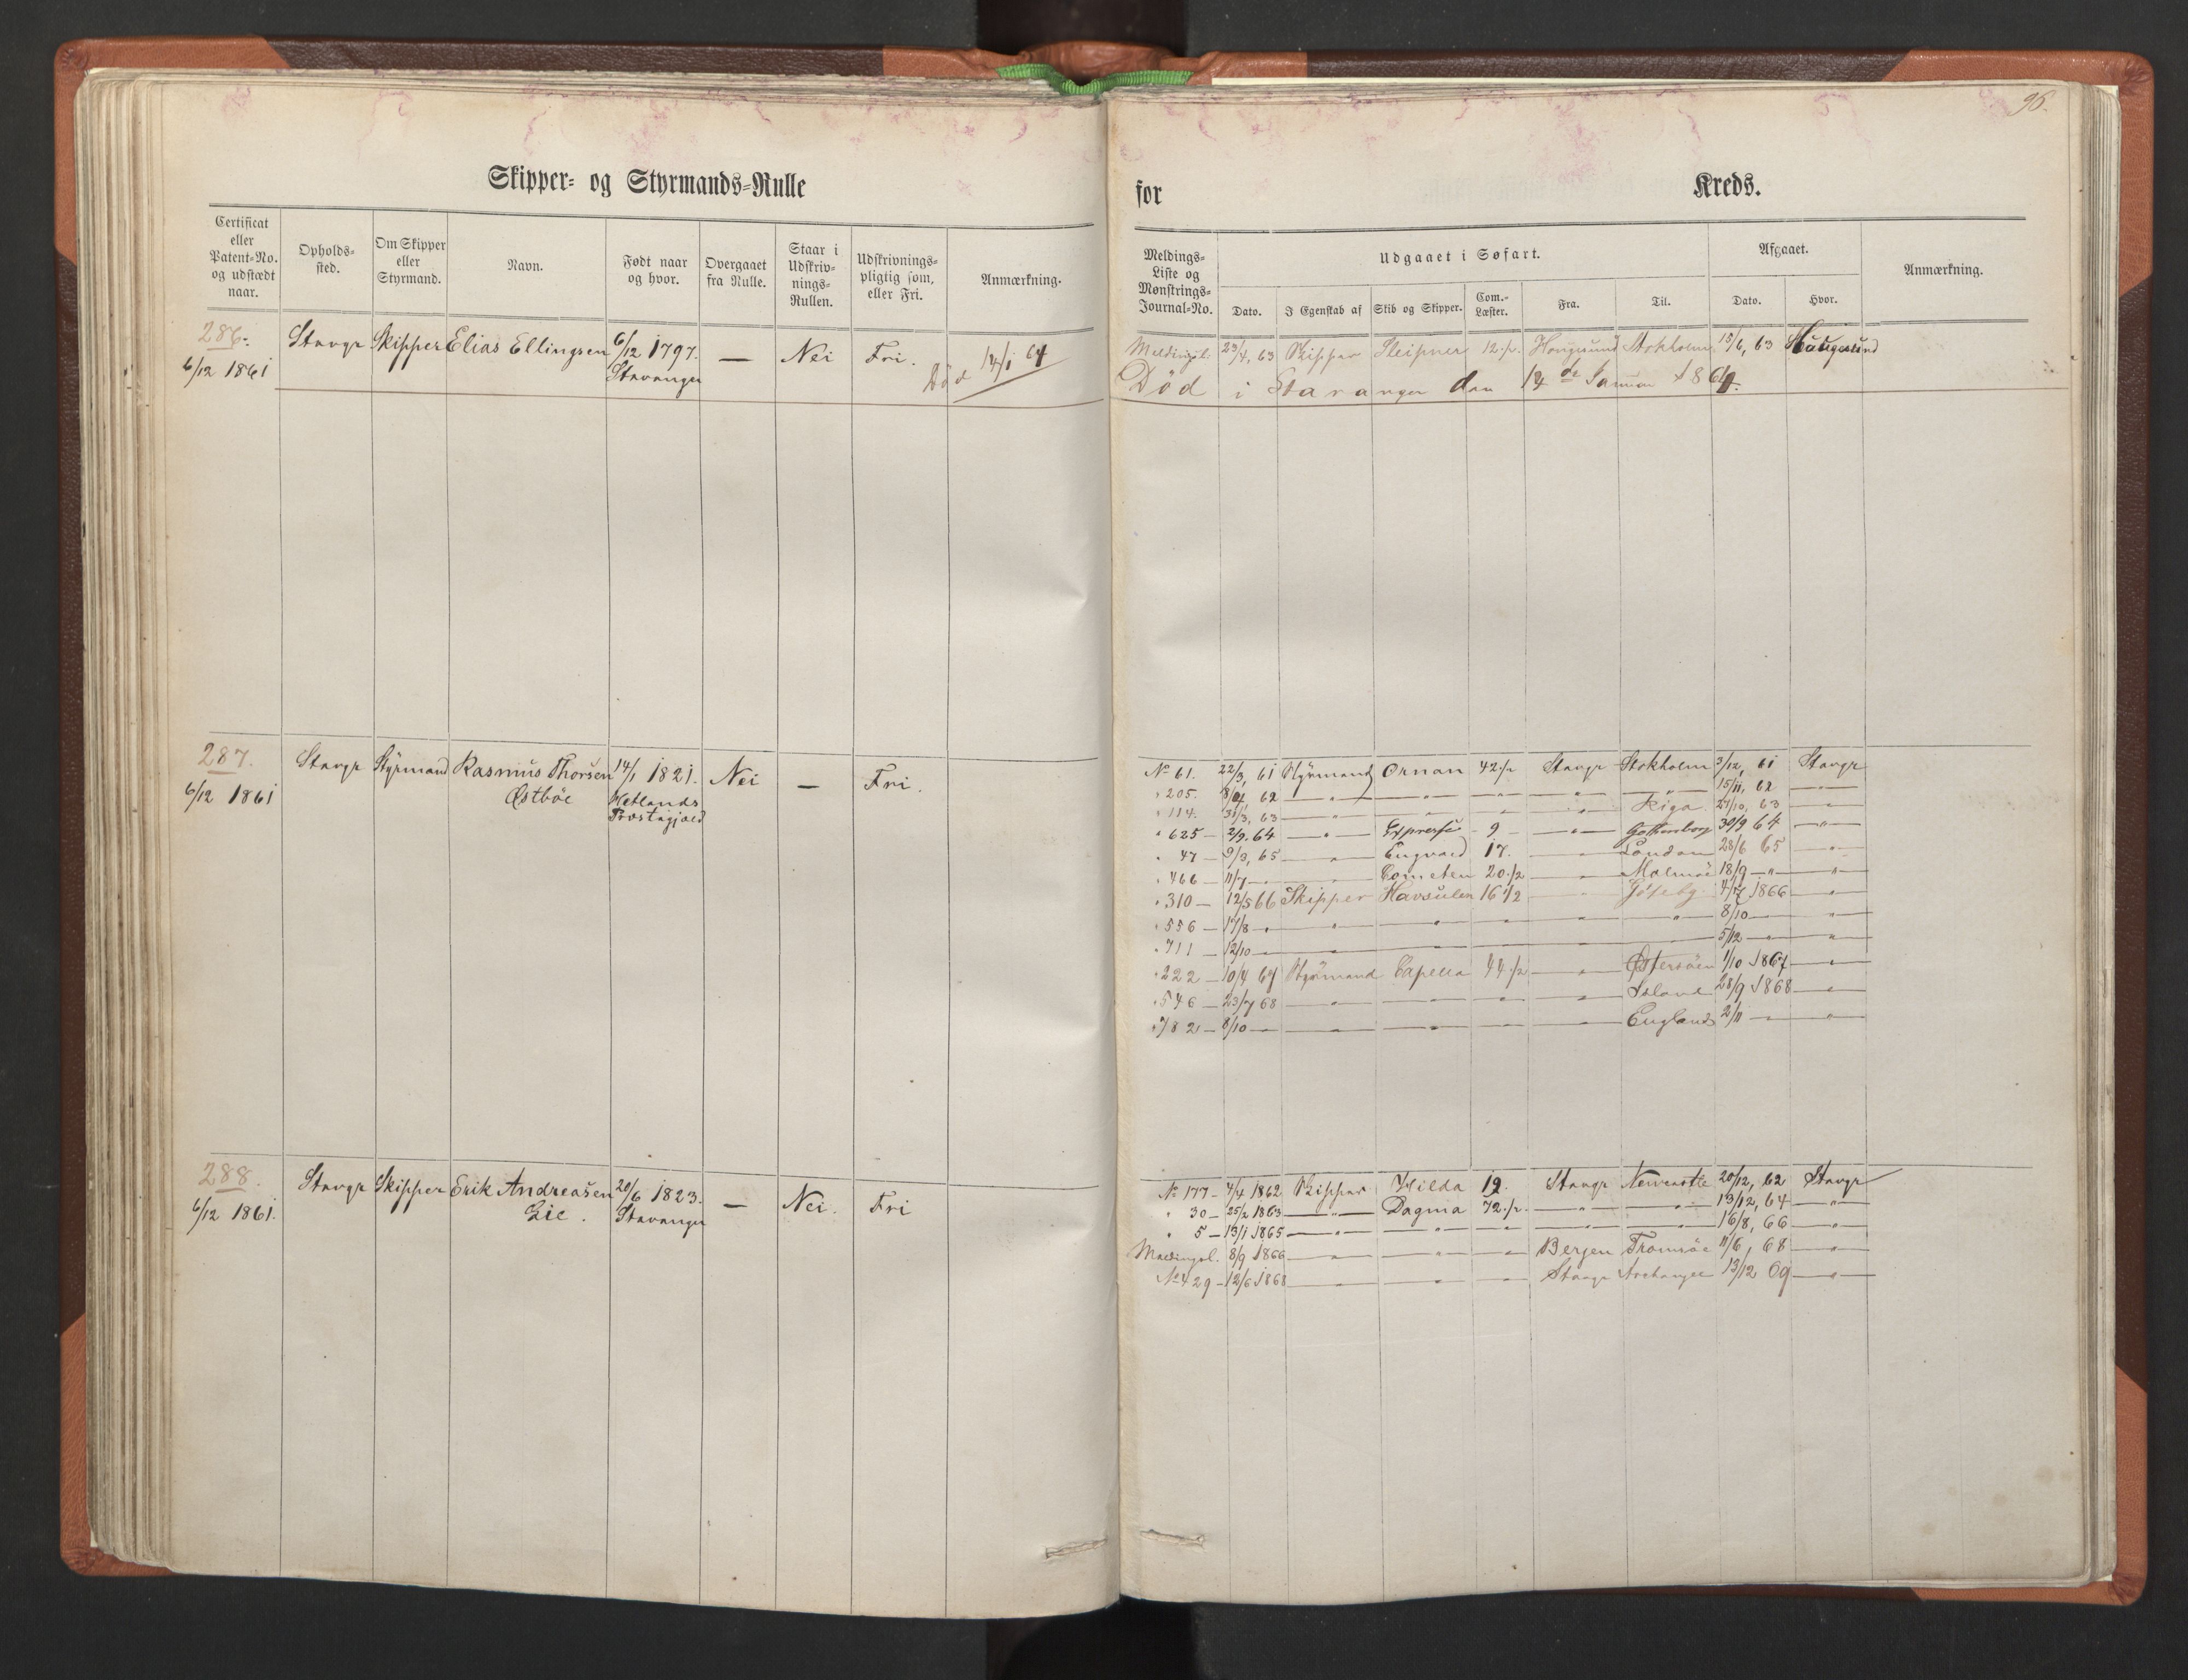 96.
Skipper- og Styrmands-Rulle
for Kreds.
Certificat eller Patent-No. og udstædt naar. | Opholds-sted. | Om Skipper eller Styrmand. | Navn. | Født naar og hvor. | Overgaaet fra Rulle. | Staar i Udskriv-nings-Rullen. | Udskrivnings-pligtig som, eller Fri. | Anmærkning.
Meldings-Liste og Mønstrings-Journal-No. | Udgaaet i Søfart. | Afgaaet. | Anmærkning.
Dato. | I Egenskab af | Skib og Skipper. | Com.-Læster. | Fra. | Til. | Dato. | Hvor.
286. Stavgr Skipper Elias Ellingsen 6/12 1797. — Nei Fri. Død 14/1 64
6/12 1861 Stavanger
Meldingsl. 23/4, 63 Skipper Sleipner 12 1/2. Haugesund Stokholm 15/6, 63 Haugesund
Død i Stavanger den 14de Januar 1864.
287. Stavgr Styrmand Rasmus Thorsen 14/1 1821. Nei — Fri.
6/12 1861 Østbøe Hetlands
Præstegjæld
No 61. 22/3, 61 Styrmand Ornan 42 1/2 Stavgr Stokholm 3/12, 61 Stavgr
" 205. 62 — " — — " — — " — — " — " 15/11, 62 — " —
" 114. 31/3, 63 — " — " " " Riga 27/10, 63 — " —
" 625 — 2/9. 64 — " — Expressen 9 — — " — Gothenborg 30/9 64 — " —
" 47 — 9/3, 65 — " — Engvald 17. — " — London 28/6 65 — " —
" 466 — 11/7 — " — " — Cometen 20 1/2 — " — Malmöe 18/9 — " — — " —
" 310 — 12/5 66 Skipper Havsulen 16 1/2 — " — Göteby 1866 — " —
" 556 — 17/8 — " — " — " — " — " — " — 8/10 — " —
" 711 — 12/10 — " — " — " — " — " — " — 5/12 — " — " —
" 222 — 10/4 67 Styrmand Capella 44 1/2 — " — Østersöen 1/10 1867 — " —
" 546 — 23/7 68 — " — " — " — " — Island 28/9 1868 — " —
" 782 — 8/10 — " — " — " — " — England 2/11 — " — " —
288. Stavgr Skipper Erik Andreasen 20/6 1823. — Nei. Fri
6/12 1861. Gie. Stavanger
No 177 — 4/4 1862 Skipper Hilda 19. Stavgr Newcastle 20/12, 62 Stavgr
" 30 — 25/2 1863 — " — Dagma 72 1/2. — " — — " — 13/12, 64 — " —
" 5 — 13/1 1865 — " — " — " — " — " — 16/8, 66 — " —
Meldingsl. 8/9 1866 — " — " — " — Bergen Tromsöe 11/6, 68 — " —
No 429 — 12/6 1868 — " — " — " — Stavgr Archangel 13/12 69 — " —